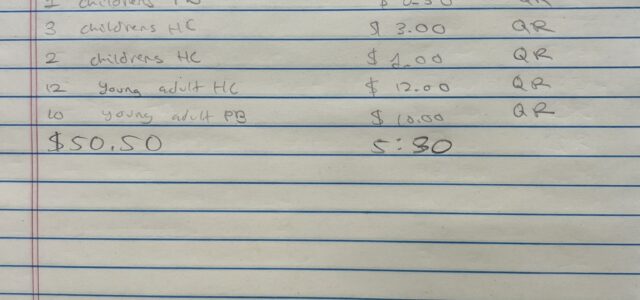 1 childrens PB $ 0.50 QR
3 childrens HC $ 3.00 QR
2 childrens HC $ 2.00 QR
12 young adult HC $ 12.00 QR
10 young adult PB $ 10.00 QR
$50.50 5:30